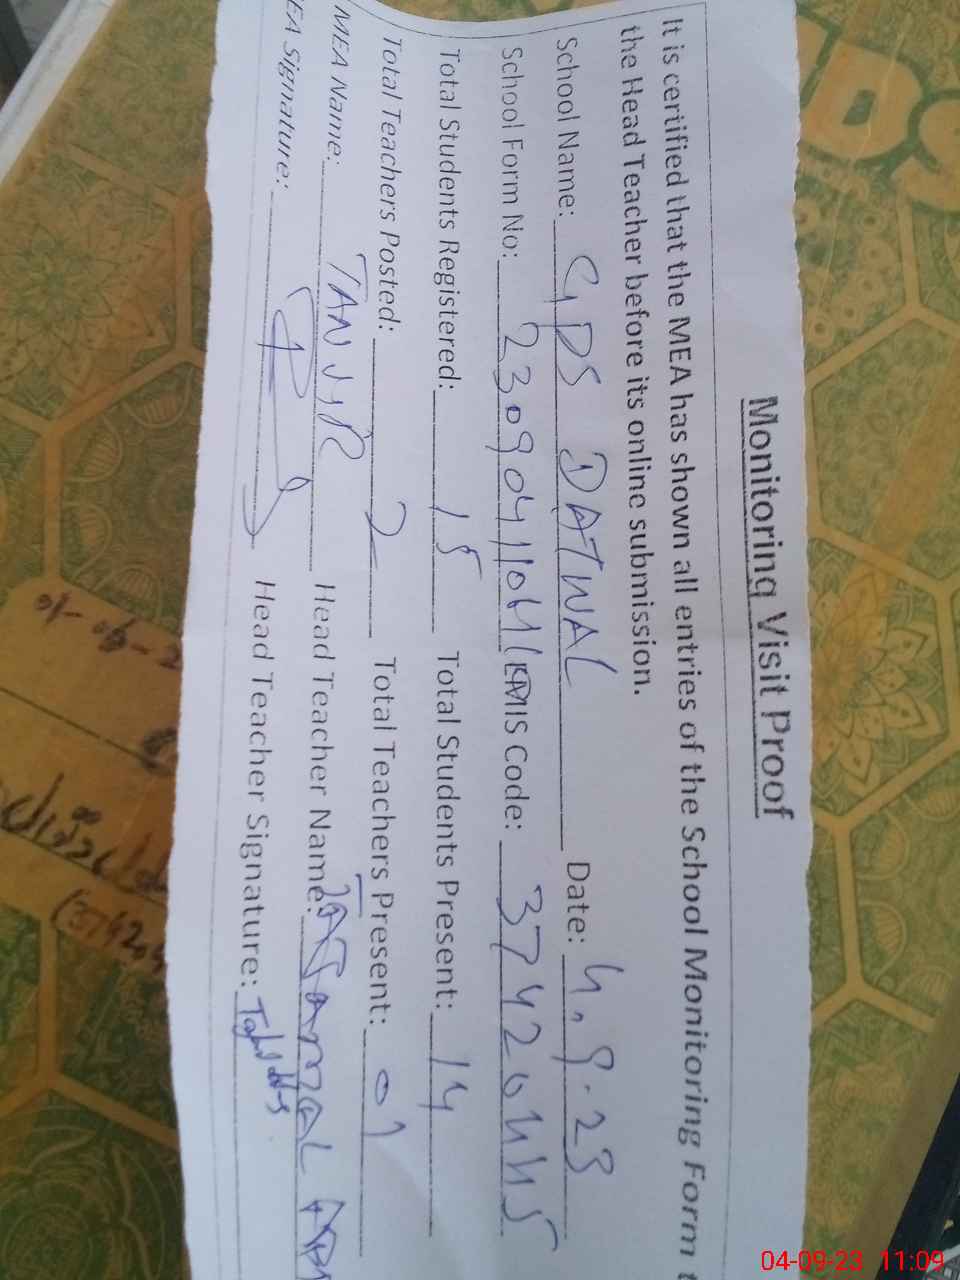 Monitoring Visit Proof
It is certified that the MEA has shown all entries of the School Monitoring Form t
the Head Teacher before its online submission.
School Name: GPS DATWAL Date: 4.9.23
School Form No: 230904110641 EMIS Code: 37420445
Total Students Registered: 15 Total Students Present: 14
Total Teachers Posted: 2 Total Teachers Present: 01
MEA Name: TANVIR Head Teacher Name:
EA Signature: Head Teacher Signature:
04-09-23 11:09